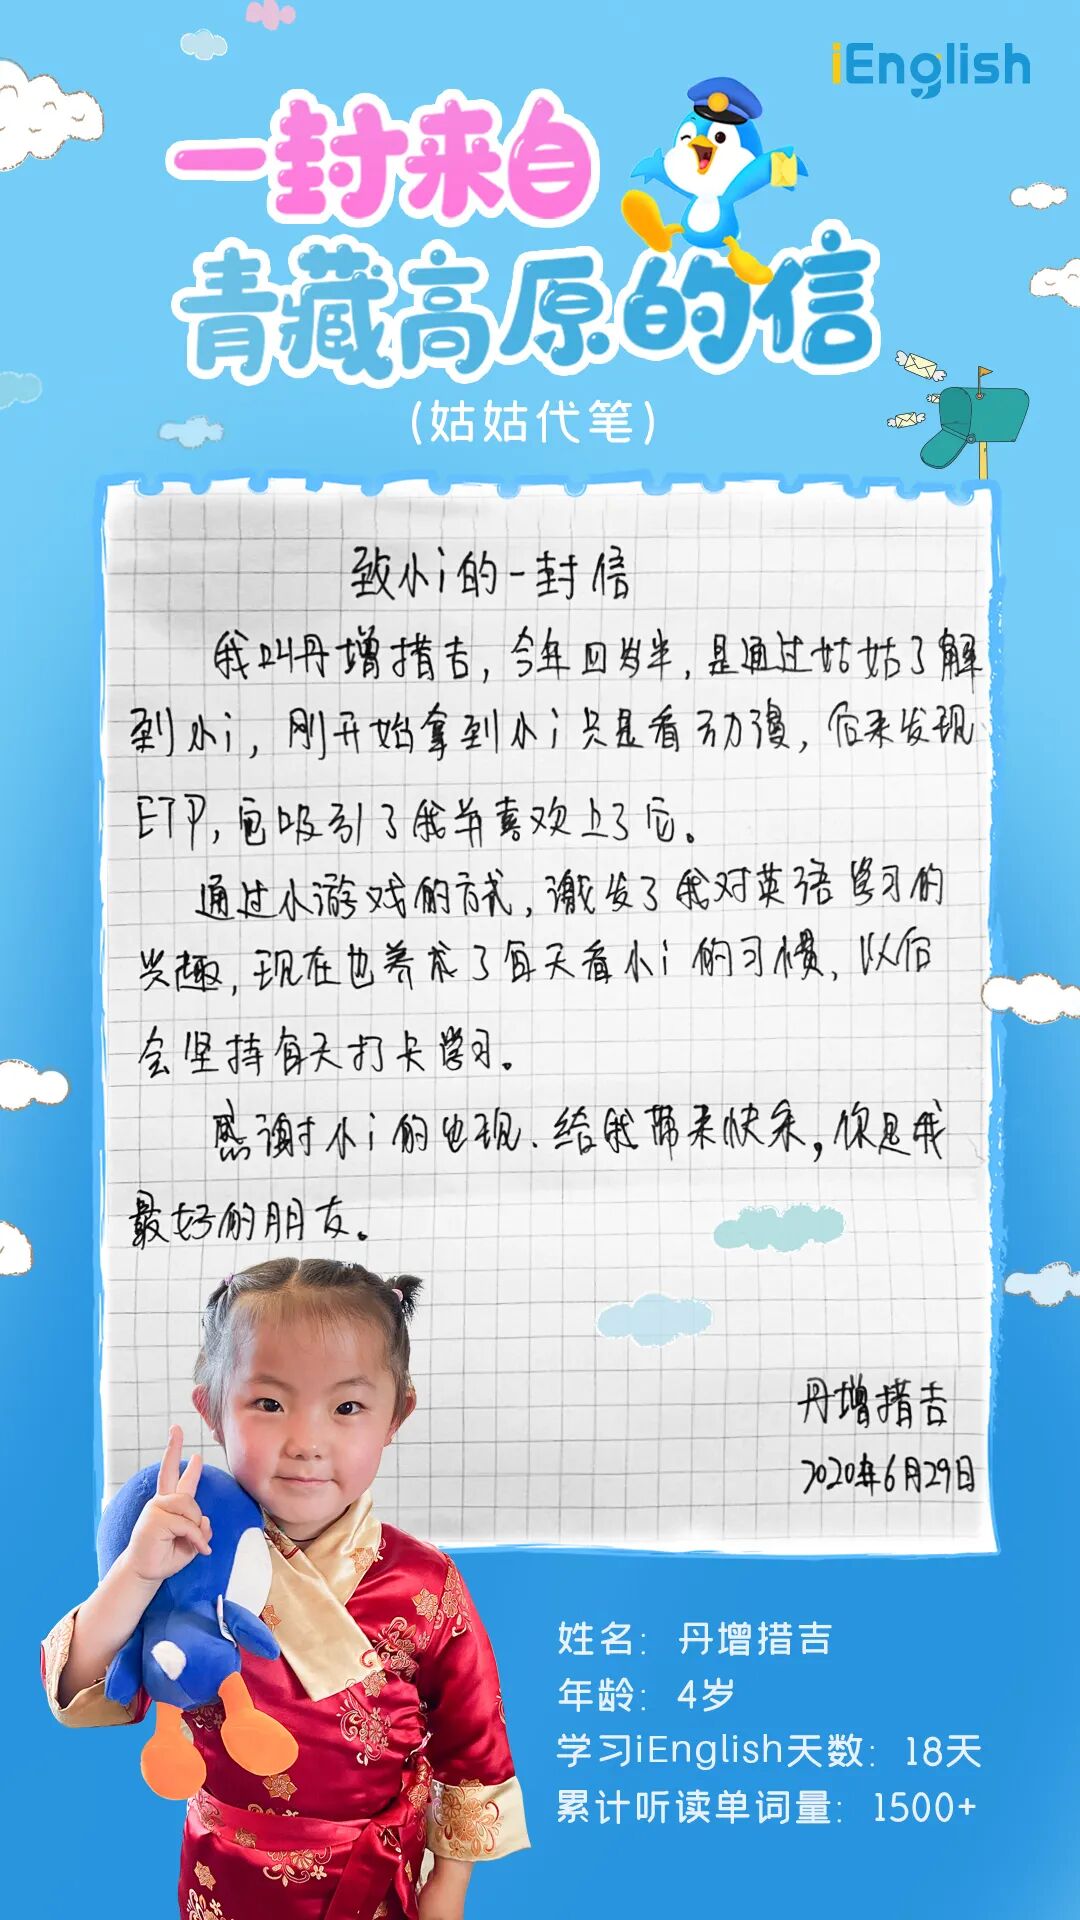 iEnglish
一封来自
青藏高原的信
(姑姑代笔)
致小i的一封信
我叫丹增措吉，今年四岁半，是通过姑姑了解
到小i，刚开始拿到小i只是看动漫，后来发现
ETP，它吸引了我并喜欢上了它。
通过小游戏的方式，激发了我对英语学习的
兴趣，现在也养成了每天看小i的习惯，以后
会坚持每天打卡学习。
感谢小i的出现、给我带来快乐，你是我
最好的朋友。
丹增措吉
2020年6月29日
姓名：丹增措吉
年龄：4岁
学习iEnglish天数：18天
累计听读单词量：1500+